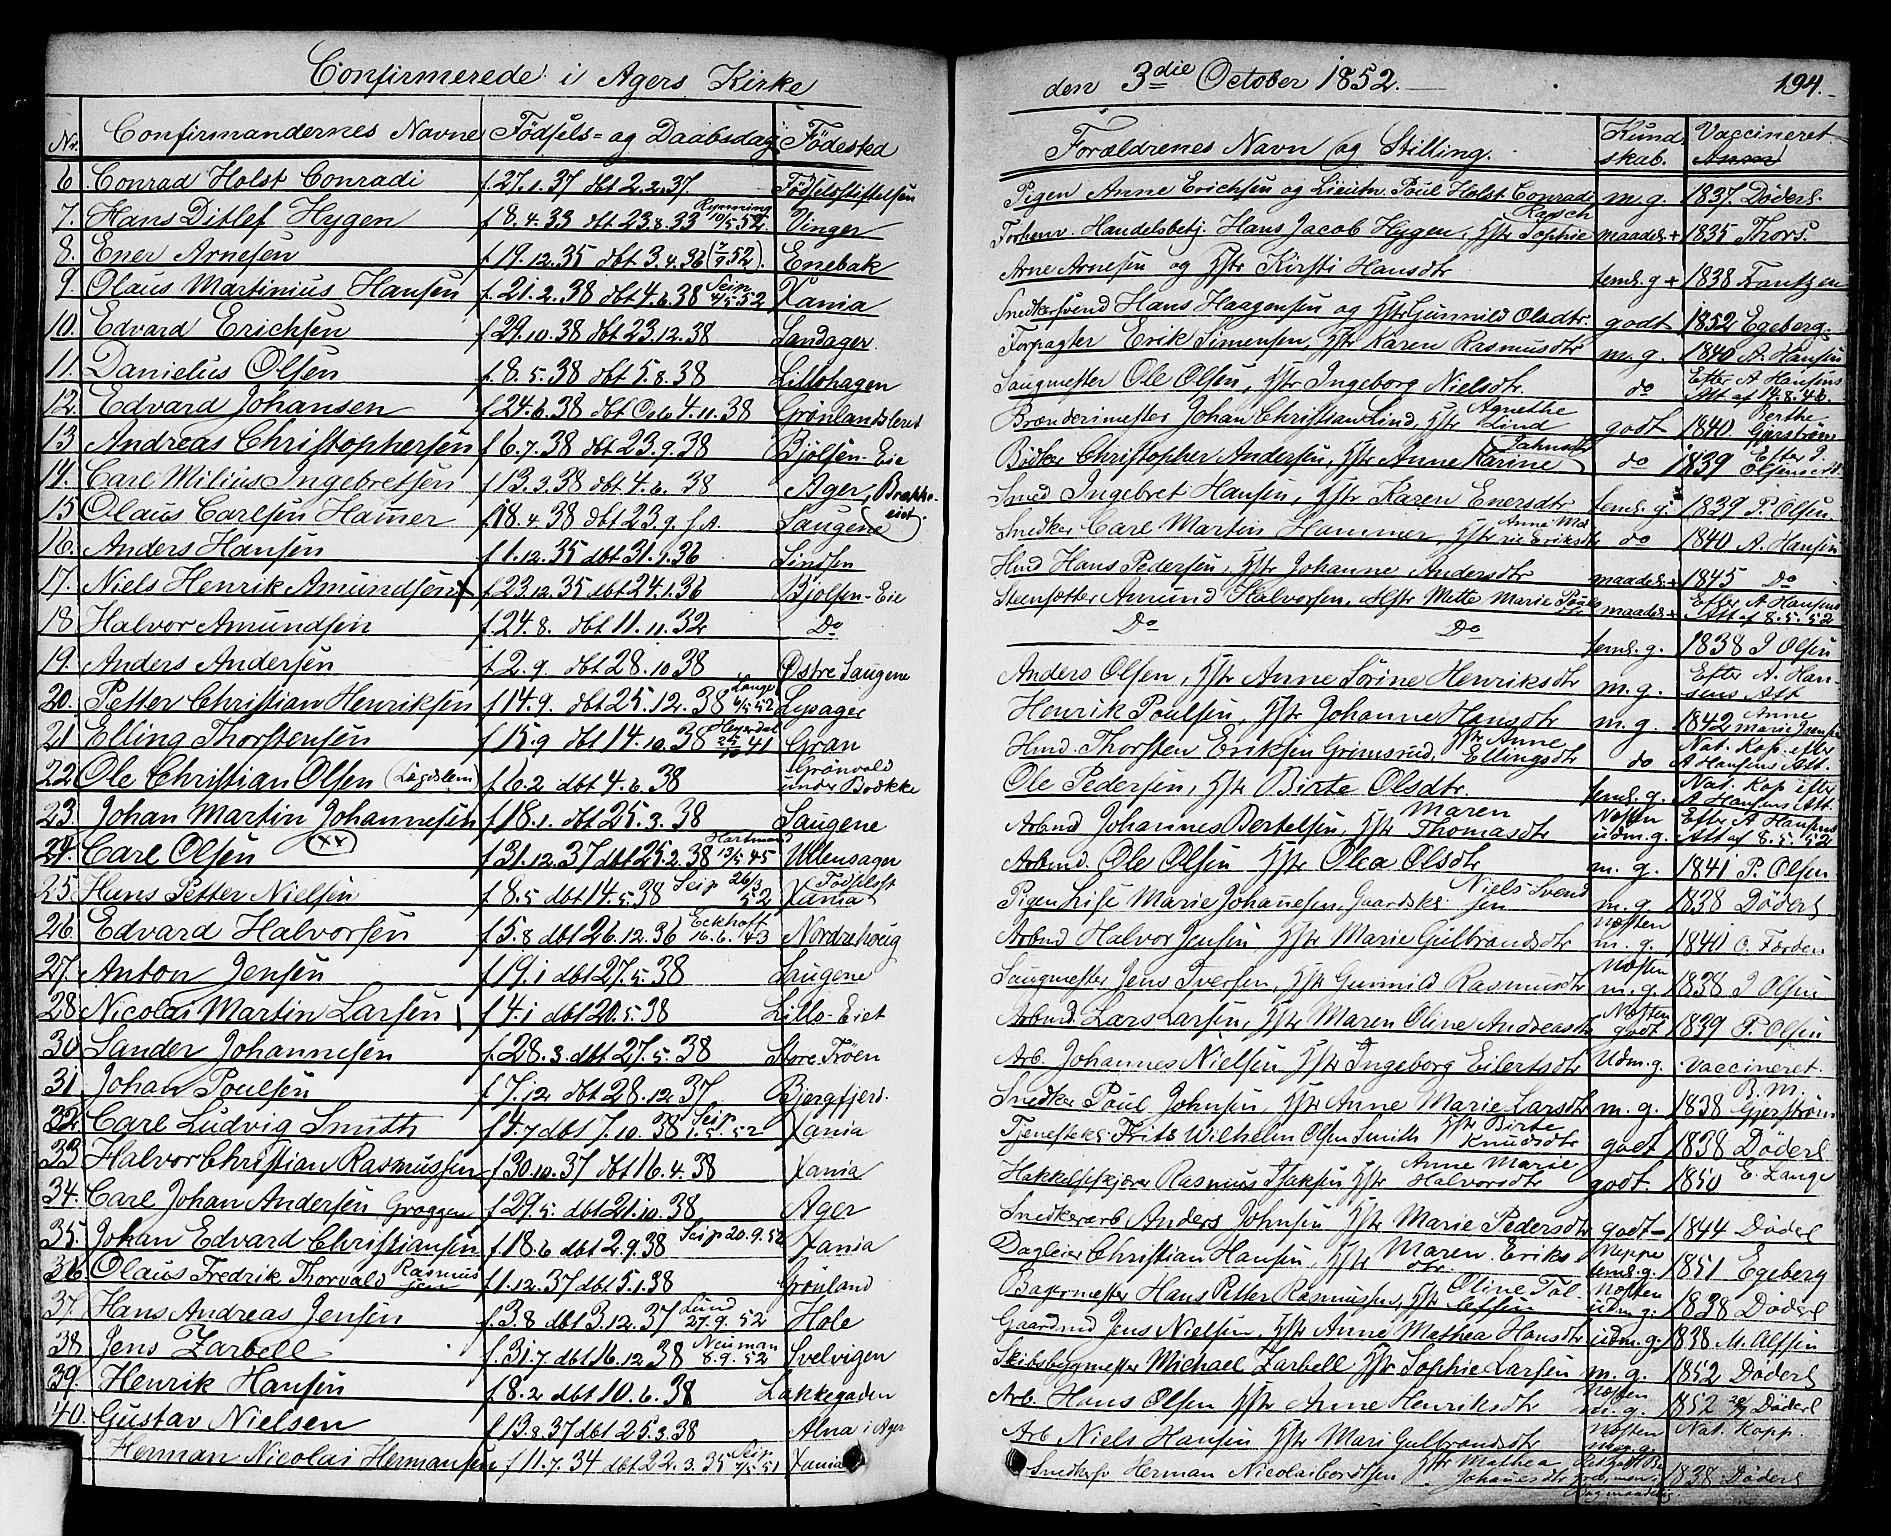 Confirmerede i Agers Kirke
den 3die October 1852. 194.
Nr. Confirmandernes Navne Födsels- og Daabsdag Födested Forældrenes Navn og Stilling. Kundskab. Vaccineret
6 Conrad Holst Conradi f. 27.1.37 dbt 2.2.37. Födselsstiftelsen Pigen Anne Erichsen og Lieutn. Poul Holst Conradi m.g. 1837. Döderl.
7. Hans Ditlef Hygen f 8.4.33 dbt 23.8.33 10/5 52 Vinger Forhenv. Handelsbetj. Hans Jacob Hygen, Hstr Sophie maadel. + 1835 Thors.
8. Ener Arnesen f 19.12.35 dbt 3.4.36 Enebak Arne Arnesen og Hstr Kirsti Hansdtr teml. g + 1838 Frantzen
9. Olaus Martinius Hansen f. 21.2.38 dbt 4.6.38 Seip 4/5 52 Xania Snedkersvend Hans Haagensen og Hstr Gunnild Olsdtr. godt 1852 Egeberg.
10. Edvard Erichsen f 29.10.38 dbt 23.12.38 Sandager. Forpagter Erik Simensen, Hstr Karen Rasmusdtr m. g. 1840 A. Hansen
11. Danielus Olsen f. 8.5.38 dbt 5.8.38 Lillohagen Saugmester Ole Olsen, Hstr Ingeborg Nielsdtr. do Efter A Hansens Att af 14.8.46.
12. Edvard Johansen f 24.6.38 dbt Oslo 4.11.38 Grönlandsleret Brænderimester Johan Christian Lind, Hstr Agnethe Lind godt 1840. Berthe Gjerström
13 Andreas Christophersen f 6.7.38 dbt 23.9.38 Bjölsen-Eie Bödker Christopher Andersen, Hstr Anne Karine do 1839 Efter J. Olsens Att
14. Carl Milius Ingebretsen f 13.3.38 dbt 4.6.38 Ager, Smed Ingebret Hansen, Hstr Karen Enersdtr teml. g. 1839 P. Olsen.
15 Olaus Carlsen Hamer f 18.4.38 dbt 23.9. s.A. Saugene Snedker Carl Martin Hammer, Hstr Anne Marie Eriksdtr do 1840 A. Hansen
16. Anders Hansen f 1.12.35 dbt 31.1.36 Lindsen Hmd Hans Pedersen, Hstr Johanne Andersdtr maadel. + 1845 Do
17. Niels Henrik Amundsen f 23.12.35 dbt 24.1.36 Bjölsen-Eie Steensætter Amund Halvorsen, Hstr Mette Marie Poulsdtr maadel. + Efter A Hansens Att af 8.5.52
18 Halvor Amundsen f. 24.8. dbt 11.11.32 Do Do Do teml. g. 1838 J Olsen
19. Anders Andersen f. 2.9. dbt 28.10.38 Östre Saugene Anders Olsen, Hstr Anne Sörine Henriksdtr m. g. Efter A. Hansens Att
20. Petter Christian Henriksen f 14.9. dbt 25.12.38 Lange 6/5 52 Lysager Henrik Poulsen, Hstr Johanne Hansdtr m. g. 1842 Anne Marie Jensen
21 Elling Thorstensen f 15.9 dbt 14.10.38 Heyerdal 41 Gran Hmd. Thorsten Eriksen Grimsrud, Hstr Anne Ellingsdtr do Nat. Kop. efter A Hansens Att.
22 Ole Christian Olsen (Lægdslem) f 6.2 dbt 4.6.38 Grönvold under Bække Ole Pedersen, Hstr Birte Olsdtr. teml. g. Nat. Kop efter A Hansens Att.
23. Johan Martin Johannesen f 18.1. dbt 25.3.38 Saugene Arbmd Johannes Bertelsen, Hstr Maren Thomasdtr Næsten udm. g. Efter A Hansens Att af 8.5.52
24. Carl Olsen xx f 31.12.37 dbt 25.2.38 Hartmand 13/5 45 Ullensager Arbmd. Ole Olsen Hstr Olea Olsdtr m. g. 1841 P. Olsen
25 Hans Petter Nielsen f 8.5 dbt 14.5.38 Seip 26/3 52 Födselsst Xania Pigen Lise Marie Johanesen, Gaardskl. Niels Svendsen m. g 1838 Döderl
26 Edvard Halvorsen f 5.8 dbt 26.12.36 Eckhoff 16.6.43 Nordrehoug Arbmd Halvor Jensen Hstr Marie Gulbrandsdtr Næsten m. g. 1840 C. Forden
27. Anton Jensen f 19.1 dbt 27.5.38 Saugene Saugmester Jens Iversen, Hstr Gunnild Rasmusdtr Næsten m. g. 1838 J Olsen
28 Nicolai Martin Larsen f 4.1 dbt 20.5.38 Lillo-Eiet Arbmd. Lars Larsen, Hstr Maren Oline Andreasdtr Næsten godt 1839 P. Olsen
30 Sander Johannesen f. 28.3. dbt 27.5.38 Store Tröen Arb. Johannes Nielsen Hstr Ingeborg Eilertsdtr Udm. g. Vaccineret.
31 Johan Poulsen f. 7.12 dbt 28.12.37 Bjergfjerd. Snedker Poul Johnsen, Hstr Anne Marie Larsdtr m. g. 1838 B. M. Gjerström
32 Carl Ludvig Smith f 4.7 dbt 7.10.38 Seip 1.5.52 Xania Tjenestekl Frits Wilhelm Olsen Smith Hstr Birte Knudsdtr godt 1838 Döderl
33 Halvor Christian Rasmussen f 30.10.37 dbt 16.4.38 Xania Hakkelseskjærer Rasmus Isaksen Hstr Anne Marie Halvorsdtr godt. 1850 E. Lange
34. Carl Johan Andersen Groggen f 29.5. dbt 21.10.38 Ager Snedkerarb Anders Johnsen Hstr Marie Pedersdtr godt- 1844 Döderl
35. Johan Edvard Christiansen f 18.6 dbt 2.9.38 Seip 20.9.52 Xania Dagleier Christian Hansen, Hstr Maren Eriksdtr. Neppe teml. g. 1851 Egeberg
36 Olaus Fredrik Thorvald Rasmussen f 1.12.37 dbt 5.1.38 Grönland Bagermester Hans Petter Rasmussen, Hstr Oline Næsten udm. g. 1838 Döderl
37. Hans Andreas Jensen f. 3.8 dbt 3.12.37 Lund 27.9.52 Hole Gaardmd Jens Nielsen Hstr Anne Mathea Hansdtr udm. g. 1838 M. Alfsen
38 Jens Zarbell f. 31.7. dbt 16.12.38 Neuman 8.9.52 Svelvigen Skibsbygmester Michael Zarbell Hstr Sophie Larsen m. g. 1852 Döderl
39. Henrik Hansen f 8.2 dbt 10.6.38 Lakkegaden Arb. Hans Olsen Hstr Anne Henriksdtr Næsten m. g. 1852 Döderl
40. Gustav Nielsen f 13.8.37 dbt 25.3.38 Alna i Ager Arb Niels Hansen Hstr Mari Gulbrandsdtr Næsten m. g. Nat. Kopp.
Herman Nicolai Hermansen f 11.7.34 dbt 22.3.35 Seip 51 Xania Snedkersv Herman Nicolai Cordtsen Hstr Mathea Johanesdtr 1838 Döderl